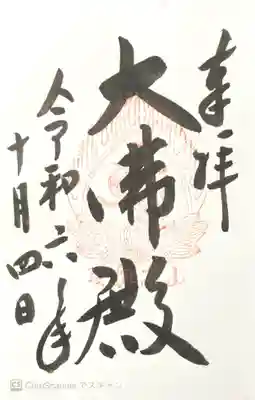 奉拝
大佛殿
令和六年
十月四日
CamScanner でスキャン